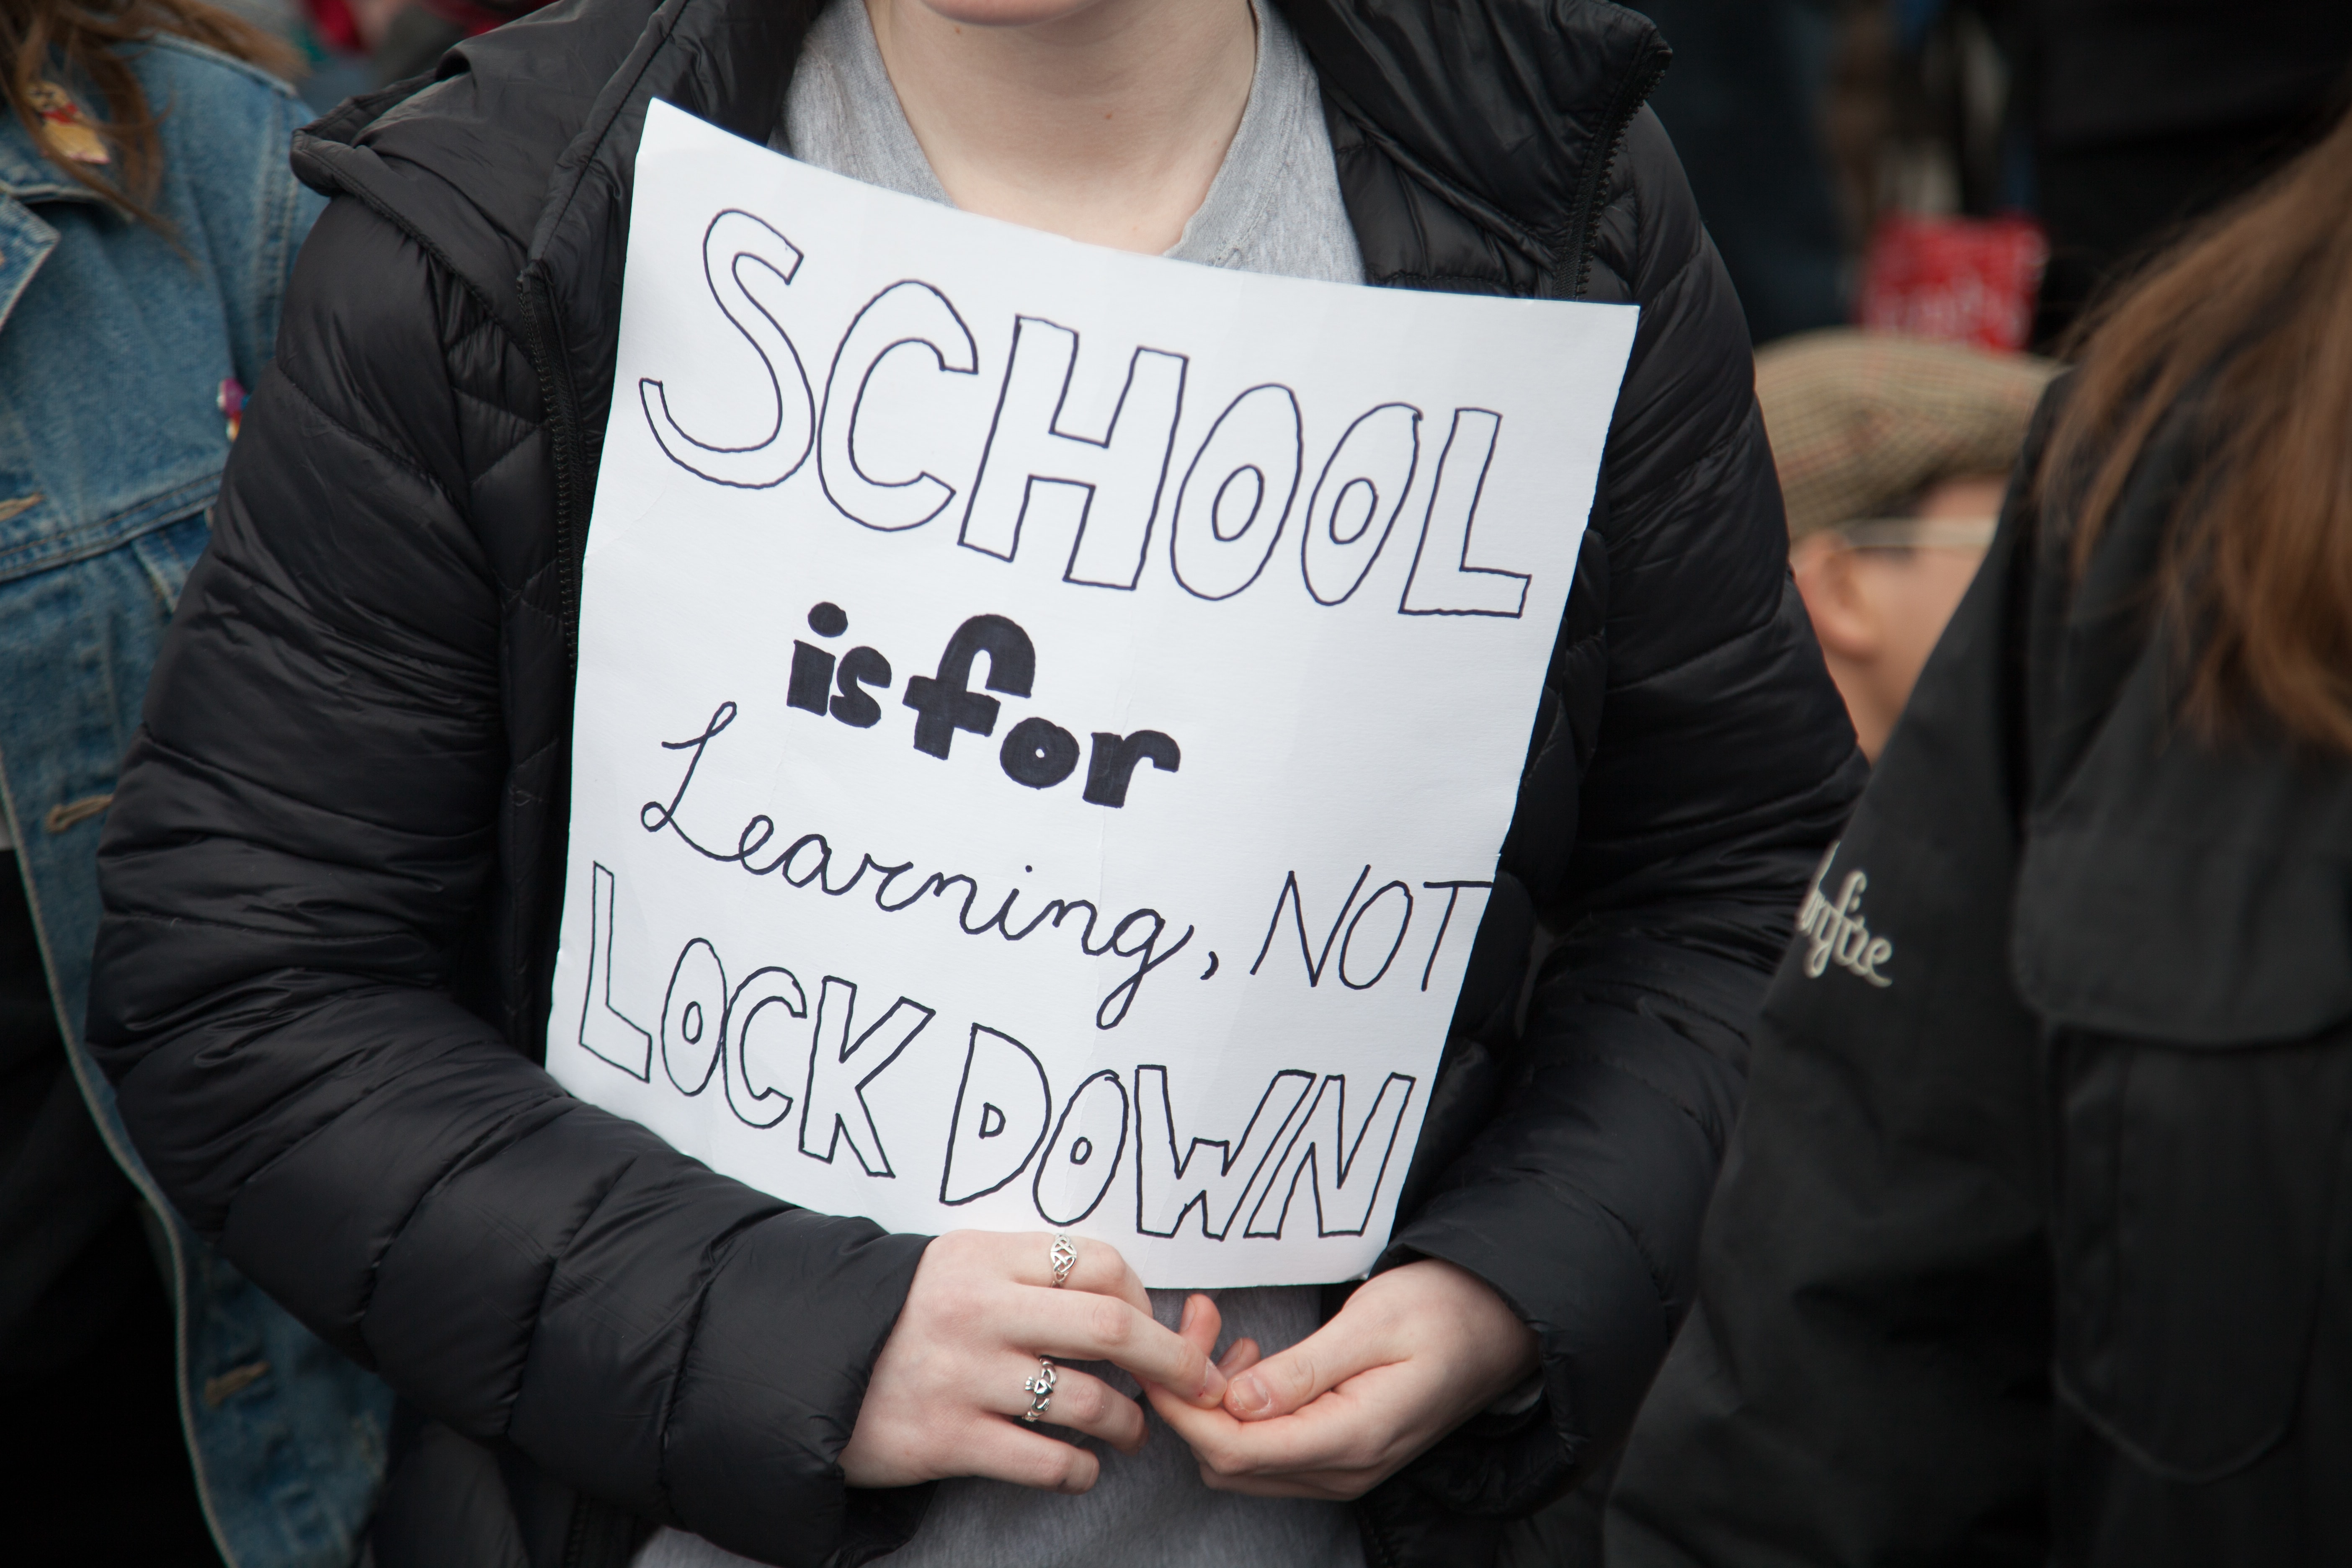 SCHOOL
is for
Learning, NOT
LOCK DOWN